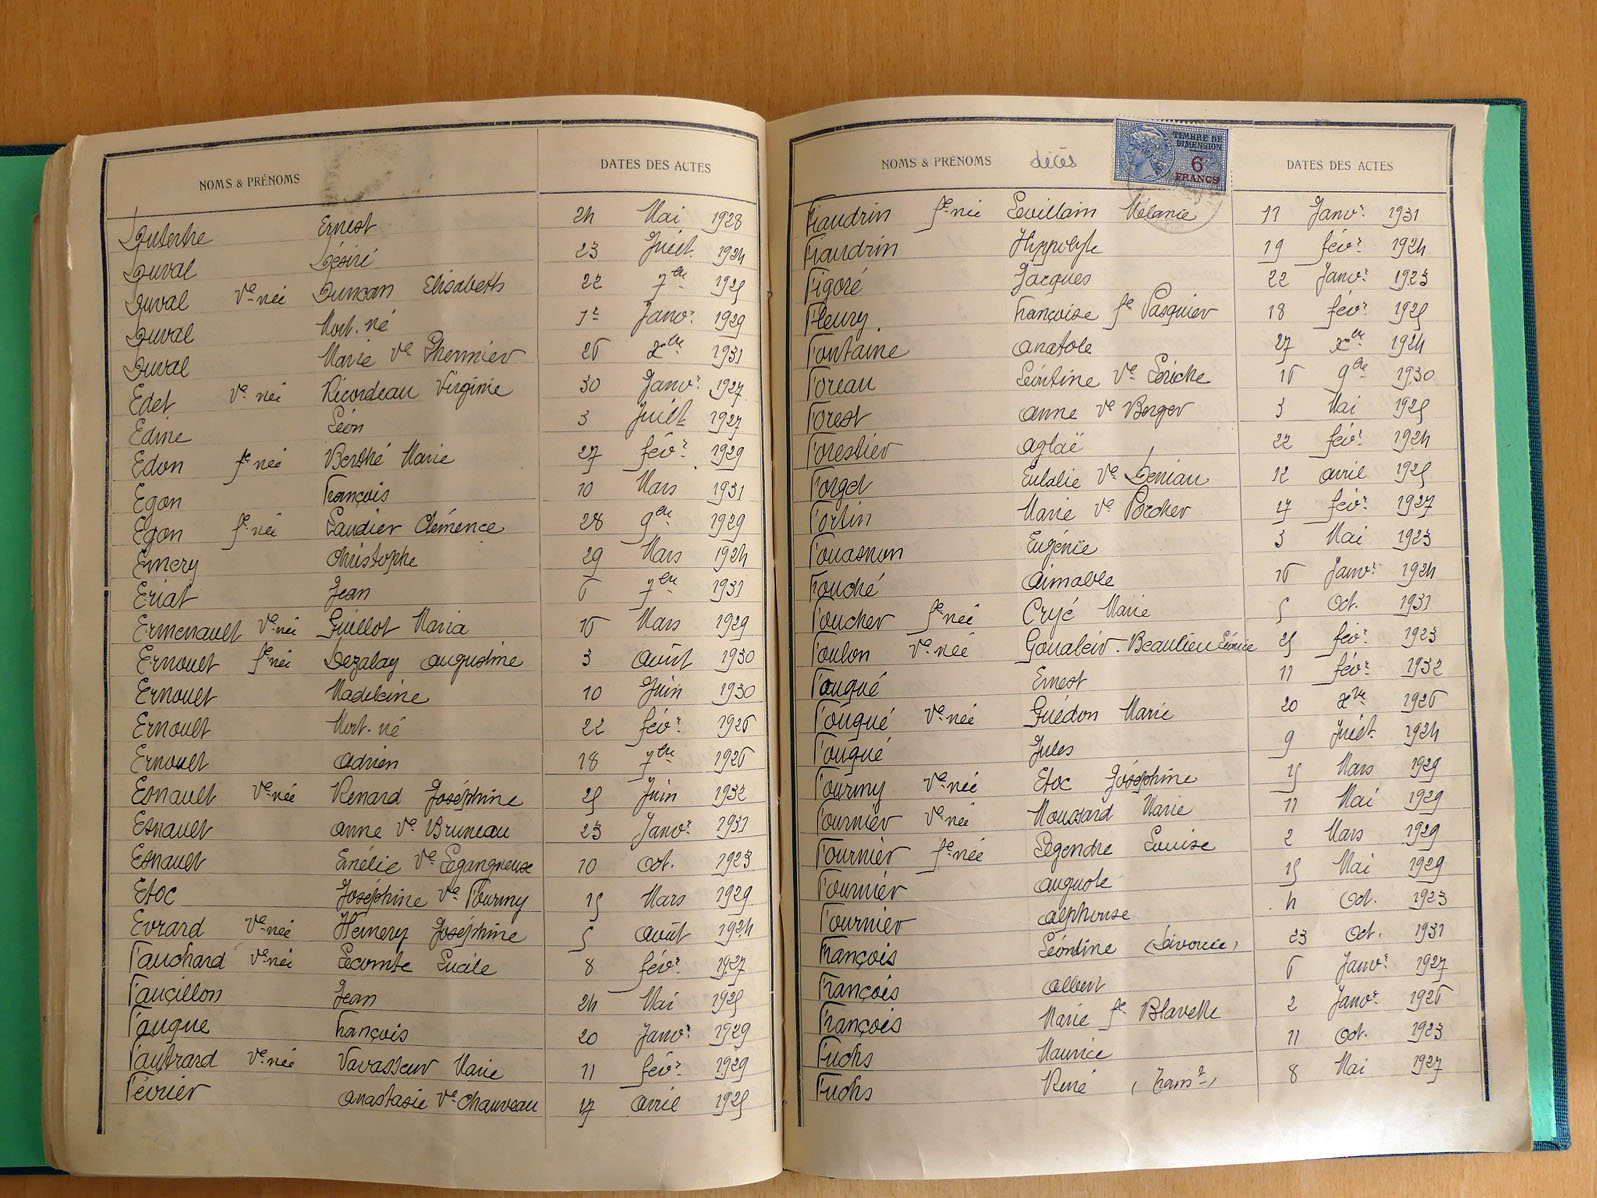 NOMS & PRÉNOMS DATES DES ACTES
Dutertre Ernest 24 Mai 1928
Duval Désiré 23 Juiet 1924
Duval Ve née Duncan Elisabeth 22 7bre 1925
Duval Mort-né 1er Janvr 1929
Duval Marie Ve Thermier 26 Xbre 1931
Edet Ve née Ricordeau Virginie 30 Janvr 1927
Edme Léon 3 Juiet 1927
Edon fe née Berthé Marie 27 févr 1929
Egon François 10 Mars 1931
Egon fe née Landier Clémence 28 9bre 1929
Emery Christophe 29 Mars 1924
Eriat Jean 6 7bre 1931
Ermenault Ve née Guillot Maria 16 Mars 1929
Ernouet fe née Dezalay Augustine 3 Août 1930
Ernouet Madeleine 10 Juin 1930
Ernoult Mort-né 22 févr 1926
Ernouet Adrien 18 7bre 1926
Esnault Ve née Renard Joséphine 25 Juin 1932
Esnault Anne Ve Bruneau 23 Janvr 1931
Esnault Emélie Ve Légangneux 10 Oct. 1923
Etoc Joséphine Ve Fourmy 15 Mars 1929
Evrard Ve née Hemery Joséphine 5 Août 1924
Fauchard Ve née Lecomte Lucile 8 févr 1927
Faucillon Jean 24 Mai 1925
Faugue François 20 Janvr 1929
Fautrard Ve née Vavasseur Marie 11 févr 1929
Février Anastasie Ve Chauveau 17 Avril 1925
NOMS & PRÉNOMS décès DATES DES ACTES
TIMBRE DE
DIMENSION
6
FRANCS
Fiaudrin fe née Levillain Mélanie 11 Janvr 1931
Fiaudrin Hippolyte 19 févr 1924
Figoré Jacques 22 Janvr 1923
Fleury Françoise fe Pasquier 18 févr 1925
Fontaine Anatole 27 Xbre 1924
Foreau Léontine Ve Lériche 16 9bre 1930
Forest Anne Ve Berger 3 Mai 1925
Forestier Aglaë 22 févr 1924
Forget Eulalie Ve Deniau 12 Avril 1925
Fortin Marie Ve Porcher 17 févr 1927
Fouasnon Eugénie 3 Mai 1923
Fouché Aimable 16 Janvr 1924
Foucher fe née Cryé Marie 5 Oct. 1931
Foulon Ve née Beaulieu 25 févr 1923
Fougué Ernest 11 févr 1932
Fougué Ve née Guédon Marie 20 Xbre 1926
Fougué Jules 9 Juiet 1924
Fourmy Ve née Etoc Joséphine 15 Mars 1929
Fournier Ve née Moussard Marie 11 Mai 1929
Fournier fe née Legendre Louise 2 Mars 1929
Fournier Auguste 15 Mai 1929
Fournier Alphonse 4 Oct. 1923
François Léontine (Divorcée) 23 Oct. 1931
François Albert 6 Janvr 1927
François Marie fe Blavette 2 Janvr 1926
Fuchs Maurice 11 Oct. 1923
Fuchs René (Transn) 8 Mai 1927